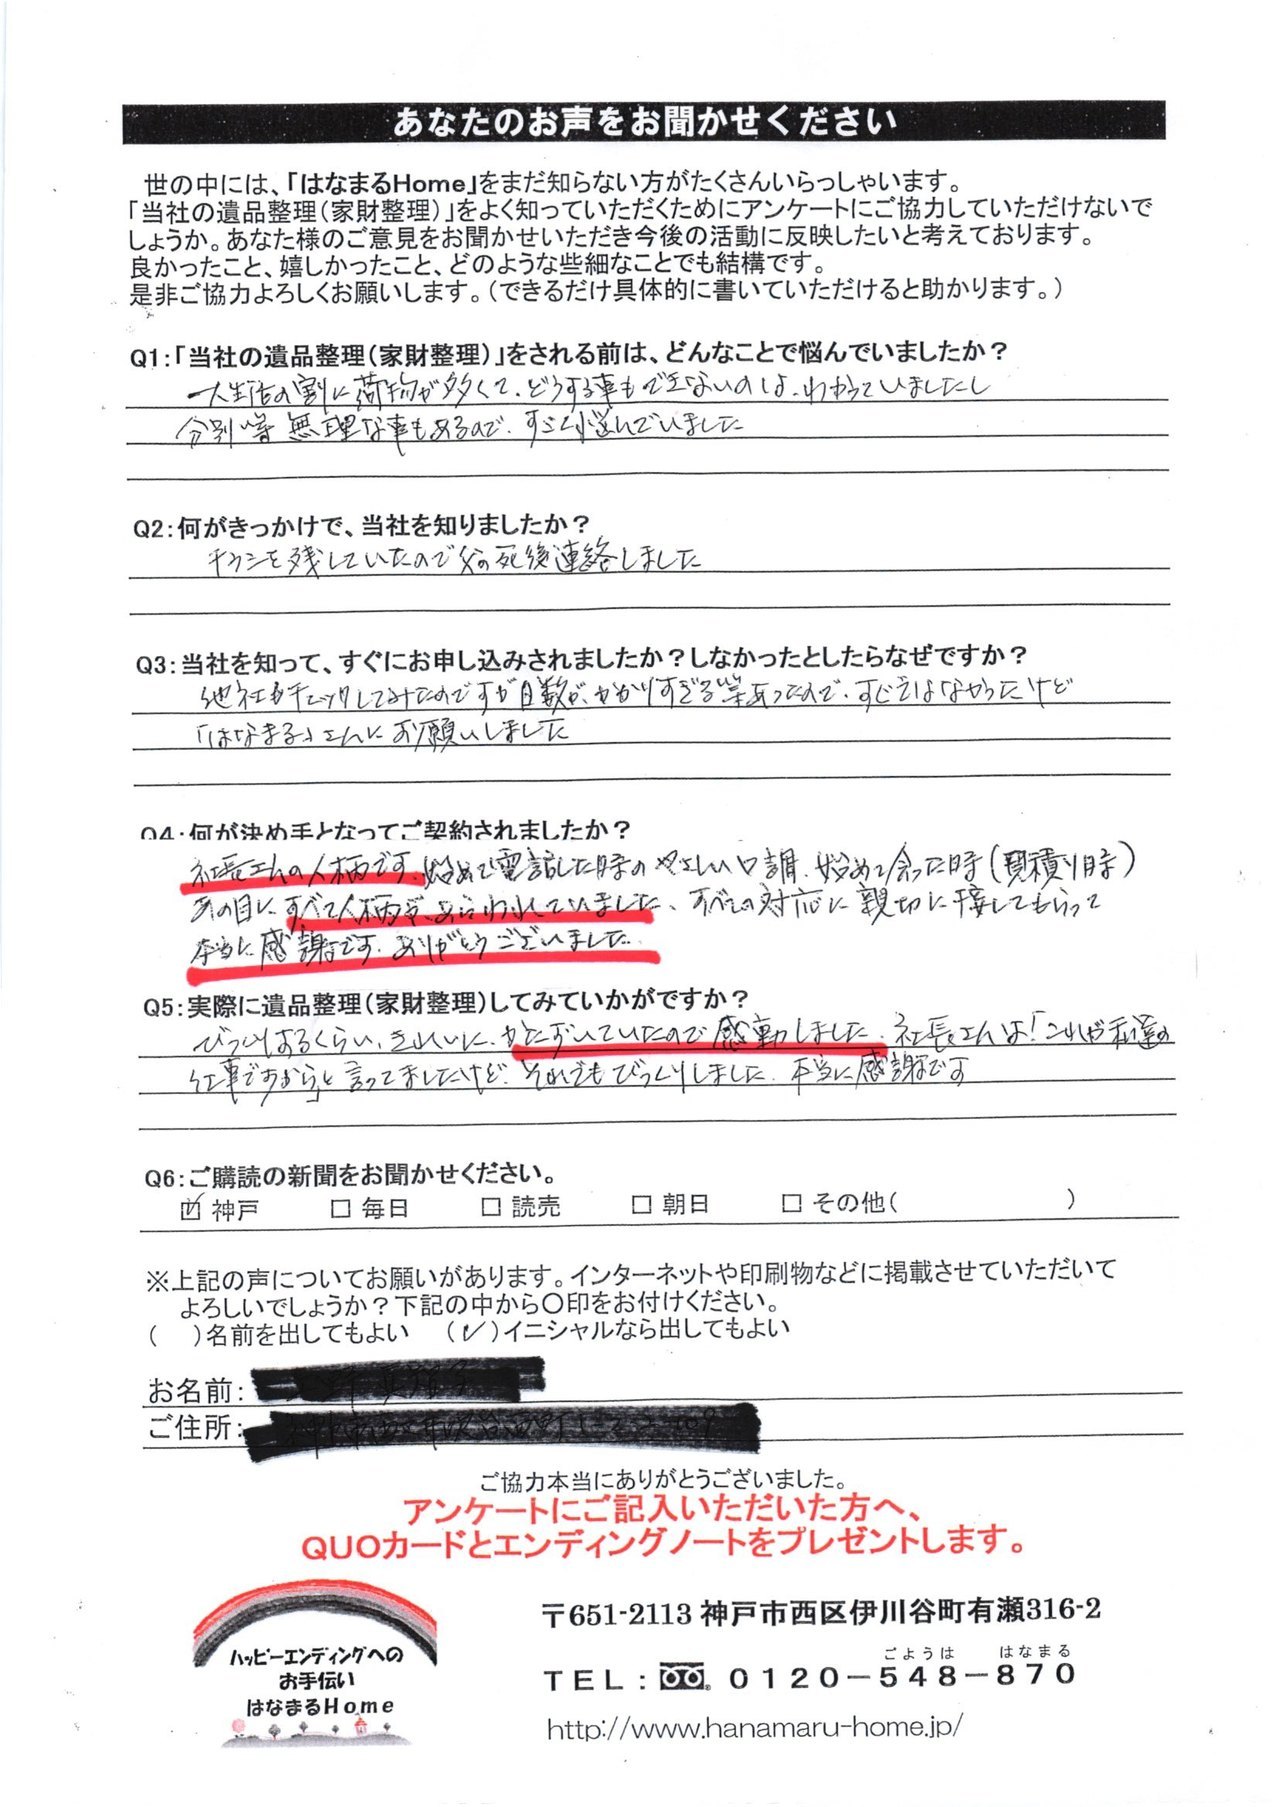 あなたのお声をお聞かせください
世の中には、「はなまるHome」をまだ知らない方がたくさんいらっしゃいます。
「当社の遺品整理(家財整理)」をよく知っていただくためにアンケートにご協力していただけないで
しょうか。あなた様のご意見をお聞かせいただき今後の活動に反映したいと考えております。
良かったこと、嬉しかったこと、どのような些細なことでも結構です。
是非ご協力よろしくお願いします。(できるだけ具体的に書いていただけると助かります。)
Q1:「当社の遺品整理(家財整理)」をされる前は、どんなことで悩んでいましたか?
一人生活の割に荷物が多くて、どうする事もできないのは、わかっていましたし
分別等無理な事もあるので、すごく悩んでいました
Q2:何がきっかけで、当社を知りましたか?
チラシを残していたので父の死後連絡しました
Q3:当社を知って、すぐにお申し込みされましたか?しなかったとしたらなぜですか?
他社もチェックしてみたのですが日数がかかりすぎる等あったので、すぐではなかったけど
「はなまる」さんにお願いしました
Q4:何が決め手となってご契約されましたか?
社長さんの人柄です。始めて電話した時のやさしい口調、始めて会った時(見積り時)
あの目に、すべて人柄が、あらわれていました、すべての対応に親切に接してもらって
本当に感謝です。ありがとうございました。
Q5:実際に遺品整理(家財整理)してみていかがですか?
びっくりするくらい、きれいに、かたずいていたので感動しました、社長さんは「これが私達の
仕事ですから」と言ってましたけど、それでもびっくりしました、本当に感謝です
Q6:ご購読の新聞をお聞かせください。
☑神戸 □毎日 □読売 □朝日 □その他( )
※上記の声についてお願いがあります。インターネットや印刷物などに掲載させていただいて
よろしいでしょうか?下記の中から〇印をお付けください。
( )名前を出してもよい (✓)イニシャルなら出してもよい
お名前:
ご住所:
ご協力本当にありがとうございました。
アンケートにご記入いただいた方へ、
QUOカードとエンディングノートをプレゼントします。
ハッピーエンディングへの
お手伝い
はなまるHome
〒651-2113 神戸市西区伊川谷町有瀬316-2
ごようは はなまる
TEL: 0120-548-870
http://www.hanamaru-home.jp/